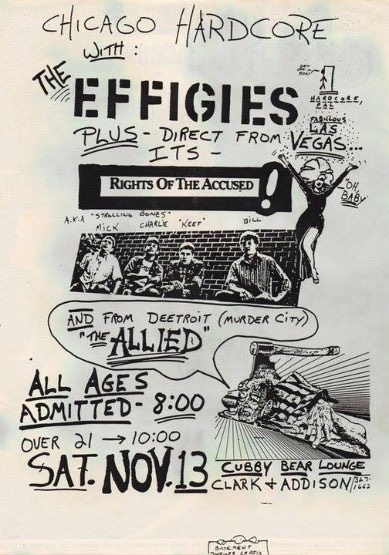 CHICAGO HARDCORE
WITH:
THE
EFFIGIES
HARDCORE,
PAL
PLUS - DIRECT FROM
FABULOUS
LAS
VEGAS...
ITS -
RIGHTS OF THE ACCUSED!
"OH,
BABY"
A.K.A "STROLLING BONES"
MICK CHARLIE "KEEF" BILL
AND FROM DEETROIT (MURDER CITY)
"THE ALLIED"
ALL AGES
ADMITTED - 8:00
OVER 21 → 10:00
SAT. NOV. 13
CUBBY BEAR LOUNGE
CLARK + ADDISON
327-
1662
BASEMENT